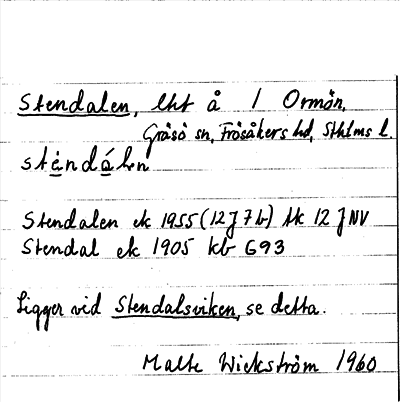 Stendalen, lht å / Ormön,
Gräsö sn, Frösåkers hd, Sthlms l.
stèndálen
Stendalen ek 1955 (12J7b) tk 12 J NV
Stendal ek 1905 kb G93
Ligger vid Stendalsviken, se detta.
Malte Wickström 1960